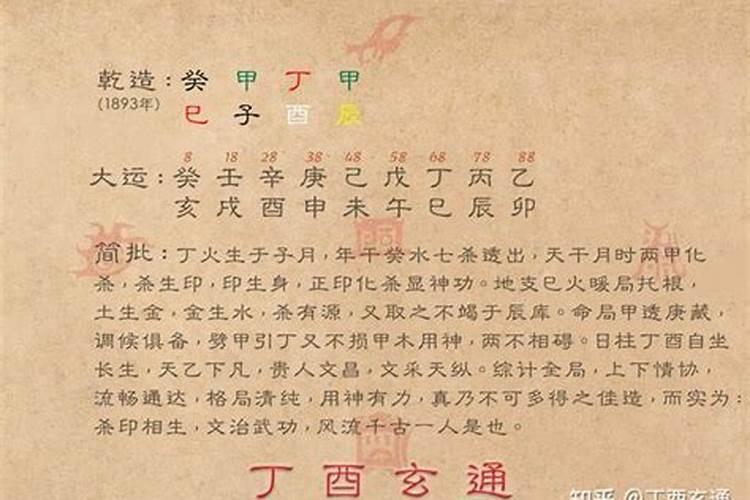 乾造：癸 甲 丁 甲
(1893年) 巳 子 酉 辰
8 18 28 38 48 58 68 78 88
大运：癸 壬 辛 庚 己 戊 丁 丙 乙
亥 戌 酉 申 未 午 巳 辰 卯
简批：丁火生于子月，年干癸水七杀透出，天干月时两甲化
杀，杀生印，印生身，正印化杀显神功。地支巳火暖局托根，
土生金，金生水，杀有源，又取之不竭于辰库。命局甲透庚藏，
调候俱备，劈甲引丁又不损甲木用神，两不相碍。日柱丁酉自坐
长生，天乙下凡，贵人文昌，文采天纵。综计全局，上下情协，
流畅通达，格局清纯，用神有力，真乃不可多得之佳造，而实为：
杀印相生，文治武功，风流千古一人是也。
丁酉玄通
知乎 @丁酉玄通